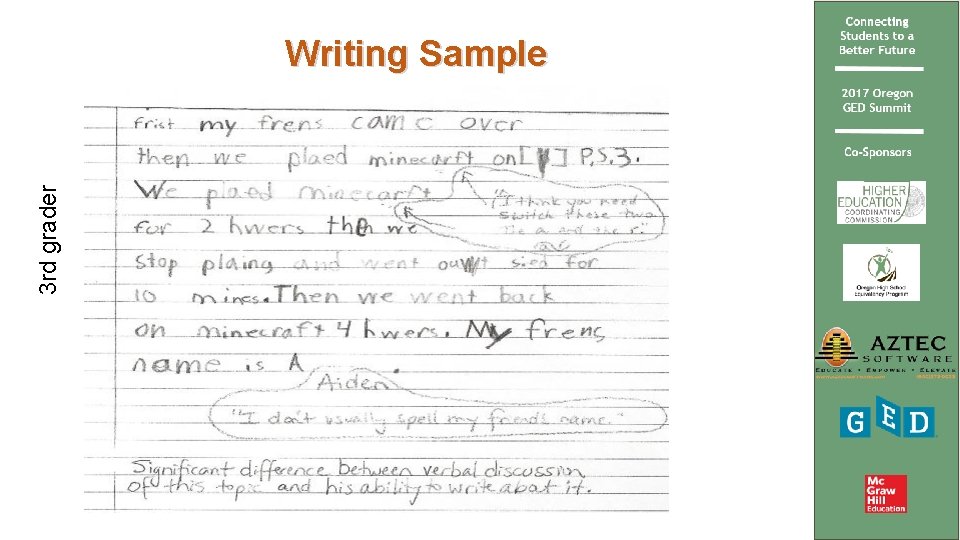 Writing Sample
3rd grader
frist my frens came over
then we plaed minecarft on [y] P.S.3.
We plaed minecarft
for 2 hwers then we
stop plaing and went ouwt sied for
10 mines. Then we went back
on minecraft 4 hwers. My frens
name is A.
"I think you need
switch these two
the a and the r."
Aiden
"I don't usually spell my friend's name."
Significant difference between verbal discussion
of this topic and his ability to write about it.
Connecting
Students to a
Better Future
2017 Oregon
GED Summit
Co-Sponsors
HIGHER
EDUCATION
COORDINATING
COMMISSION
Oregon High School
Equivalency Program
AZTEC
SOFTWARE
EDUCATE • EMPOWER • ELEVATE
GED
Mc
Graw
Hill
Education